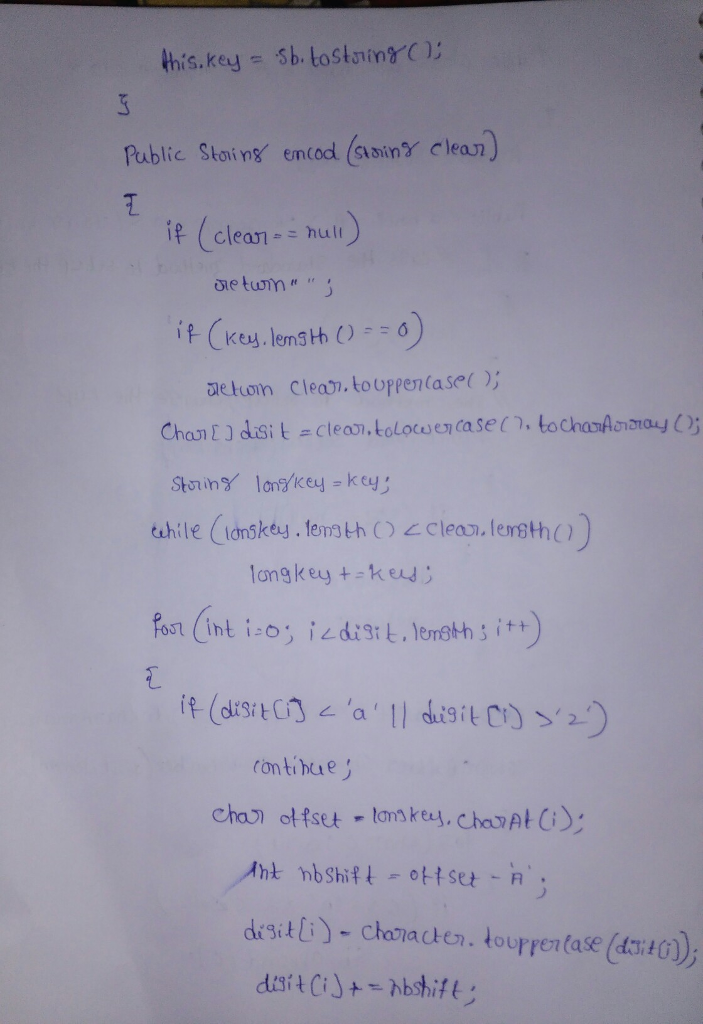 this.key = sb.toString();
}
Public String encod (string clear)
{
if (clear == null)
return " ";
if (key.length () == 0)
return clear.toUppercase( );
Char[] digit = clear.toLowercase().toCharArray();
String longkey = key;
while (longkey.length () < clear.length())
longkey += key;
for (int i=0; i<digit.length; i++)
{
if (digit[i] < 'a' || digit[i] > 'z')
continue;
char offset = longkey.charAt (i);
int nbshift = offset - 'A';
digit[i] = character.touppercase (digit[i]);
digit[i] += nbshift;